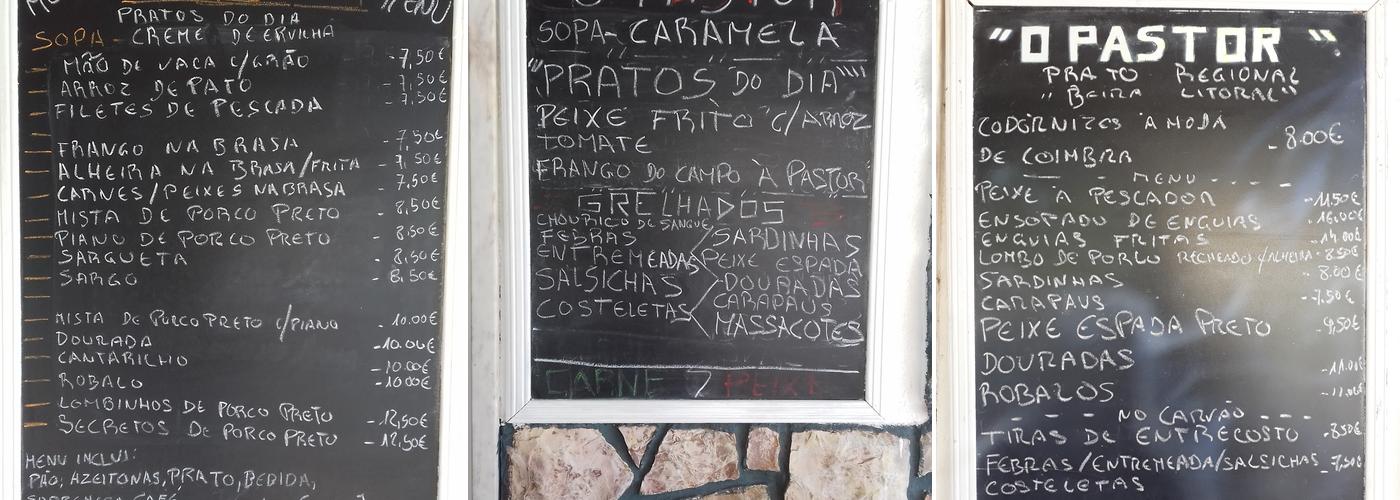 MENU
PRATOS DO DIA
SOPA - CREME DE ERVILHA
MÃO DE VACA C/GRÃO - 7,50€
ARROZ DE PATO - 7,50€
FILETES DE PESCADA - 7,50€
FRANGO NA BRASA - 7,50€
ALHEIRA NA BRASA/FRITA - 7,50€
CARNES/PEIXES NA BRASA - 7,50€
MISTA DE PORCO PRETO - 8,50€
PIANO DE PORCO PRETO - 8,50€
SARGUETA - 8,50€
SARGO - 8,50€
MISTA DE PORCO PRETO C/PIANO - 10.00€
DOURADA - 10.00€
CANTARILHO - 10.00€
ROBALO - 10.00€
LOMBINHOS DE PORCO PRETO - 12,50€
SECRETOS DE PORCO PRETO - 12,50€
MENU INCLUI:
PÃO, AZEITONAS, PRATO, BEBIDA,
SOBREMESA, CAFÉ
O PASTOR
SOPA - CARAMELA
"PRATOS DO DIA"
PEIXE FRITO C/ARROZ
TOMATE
FRANGO DO CAMPO À PASTOR
GRELHADOS
CHOURIÇO DE SANGUE
FEBRAS
ENTREMEADAS
SALSICHAS
COSTELETAS
SARDINHAS
PEIXE ESPADA
DOURADAS
CARAPAUS
MASSACOTES
CARNE PEIXE
"O PASTOR"
PRATO REGIONAL
"BEIRA LITORAL"
CODORNIZES À MODA
DE COIMBRA - 8.00€
MENU
PEIXE À PESCADOR - 11,50€
ENSOPADO DE ENGUIAS - 16.00€
ENGUIAS FRITAS - 14.00€
LOMBO DE PORCO RECHEADO C/ALHEIRA - 8.50€
SARDINHAS - 8.00€
CARAPAUS - 7,50€
PEIXE ESPADA PRETO - 9,50€
DOURADAS - 11.00€
ROBALOS - 11.00€
- - - NO CARVÃO - - -
TIRAS DE ENTRECOSTO - 8,50€
FEBRAS/ENTREMEADA/SALSICHAS - 7,50€
COSTELETAS